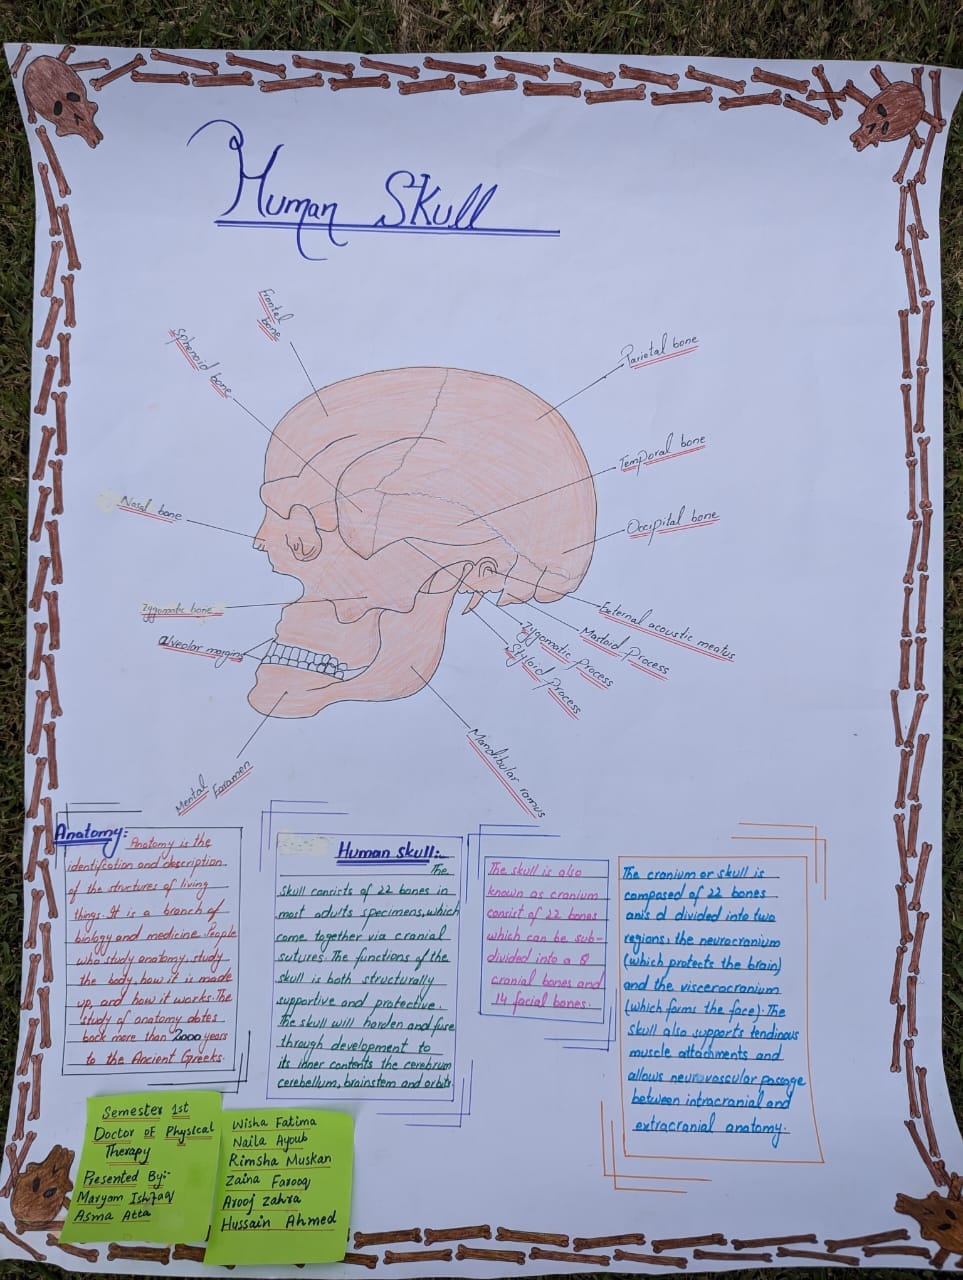 Human Skull
Frontel
bone
Sphenoid bone
Parietal bone
Temporal bone
Nasal bone
Occipital bone
Zygomatic bone
External acoustic meatus
Mastoid Process
Zygomatic Process
Styloid Process
alveolar margins
Mandibular ramus
Mental Foramen
Anatomy:
Anatomy is the
identifcation and description
of the structures of living
things. It is a branch of
biology and medicine. People
who study anatomy, study
the body, how it is made
up, and how it works. The
study of anatomy dates
back more than 2000 years
to the Ancient Greeks.
Human skull:
The
skull consists of 22 bones in
most adults specimens, which
come together via cranial
sutures. The functions of the
skull is both structurally
supportive and protective.
The skull will harden and fuse
through development to
its inner contents the cerebrum
cerebellum, brainstem and orbits
The skull is also
known as cranium
consist of 22 bones
which can be sub-
divided into a 8
cranial bones and
14 facial bones.
The cranium or skull is
composed of 22 bones
anis d divided into two
regions, the neurocranium
(which protects the brain)
and the viscerocranium
(which forms the face). The
skull also supports tendinous
muscle attachments and
allows neurovascular passage
between intracranial and
extracranial anatomy.
Semester 1st
Doctor OF Physical
Therapy
Presented By:-
Maryam Ishfaq
Asma Atta
Wisha Fatima
Naila Ayoub
Rimsha Muskan
Zaina Farooq
Arooj Zahra
Hussain Ahmed